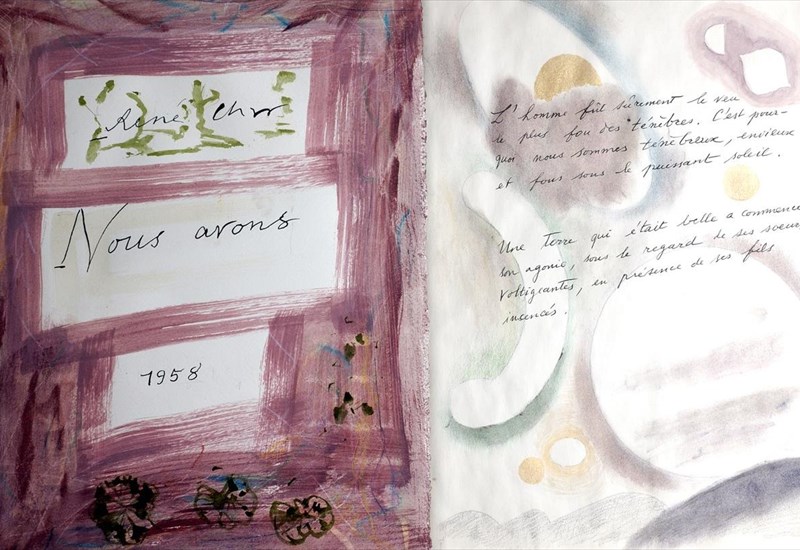 René Char
Nous avons
1958
L'homme fût sûrement le veu
le plus fou des ténèbres. C'est pour-
quoi nous sommes ténèbreux, envieux
et fous sous le puissant soleil.
Une Terre qui était belle a commencé
son agonie, sous le regard de ses soeurs
voltigeantes, en présence de ses fils
insencés.